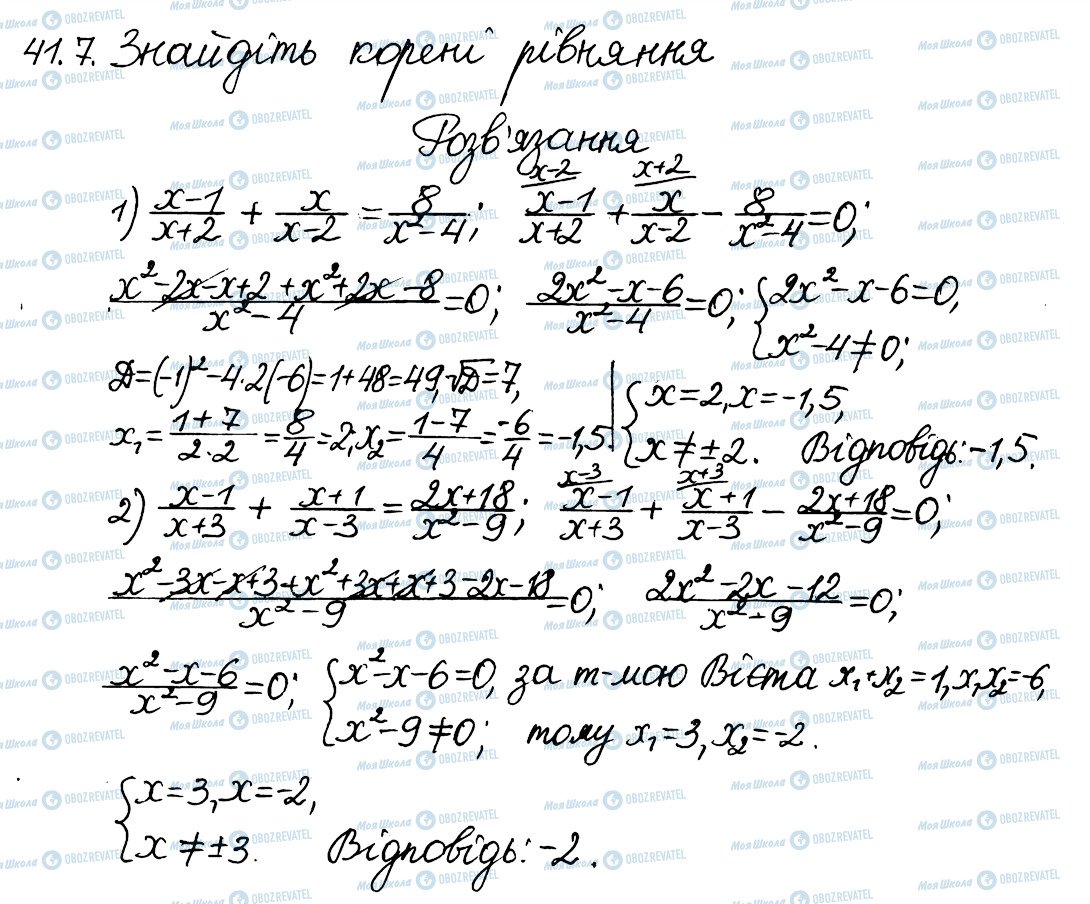 41.7. Знайдіть корені рівняння
Розв'язання
1) (x-1)/(x+2) + x/(x-2) = 8/(x²-4); (x-1)/(x+2) (x-2) + x/(x-2) (x+2) - 8/(x²-4) = 0;
(x²-2x-x+2+x²+2x-8)/(x²-4) = 0; (2x²-x-6)/(x²-4) = 0; { 2x²-x-6=0,
x²-4≠0;
D=(-1)²-4·2(-6)=1+48=49, √D=7, | { x=2, x=-1,5,
x₁=(1+7)/(2·2)=8/4=2; x₂=(1-7)/4=-6/4=-1,5. | x≠±2. Відповідь: -1,5.
2) (x-1)/(x+3) + (x+1)/(x-3) = (2x+18)/(x²-9); (x-1)/(x+3) (x-3) + (x+1)/(x-3) (x+3) - (2x+18)/(x²-9) = 0;
(x²-3x-x+3+x²+3x+x+3-2x-18)/(x²-9) = 0; (2x²-2x-12)/(x²-9) = 0;
(x²-x-6)/(x²-9) = 0; { x²-x-6=0, за т-мою Вієта x₁+x₂=1, x₁x₂=-6,
x²-9≠0; тому x₁=3, x₂=-2.
{ x=3, x=-2,
x≠±3. Відповідь: -2.
Моя Школа OBOZREVATEL